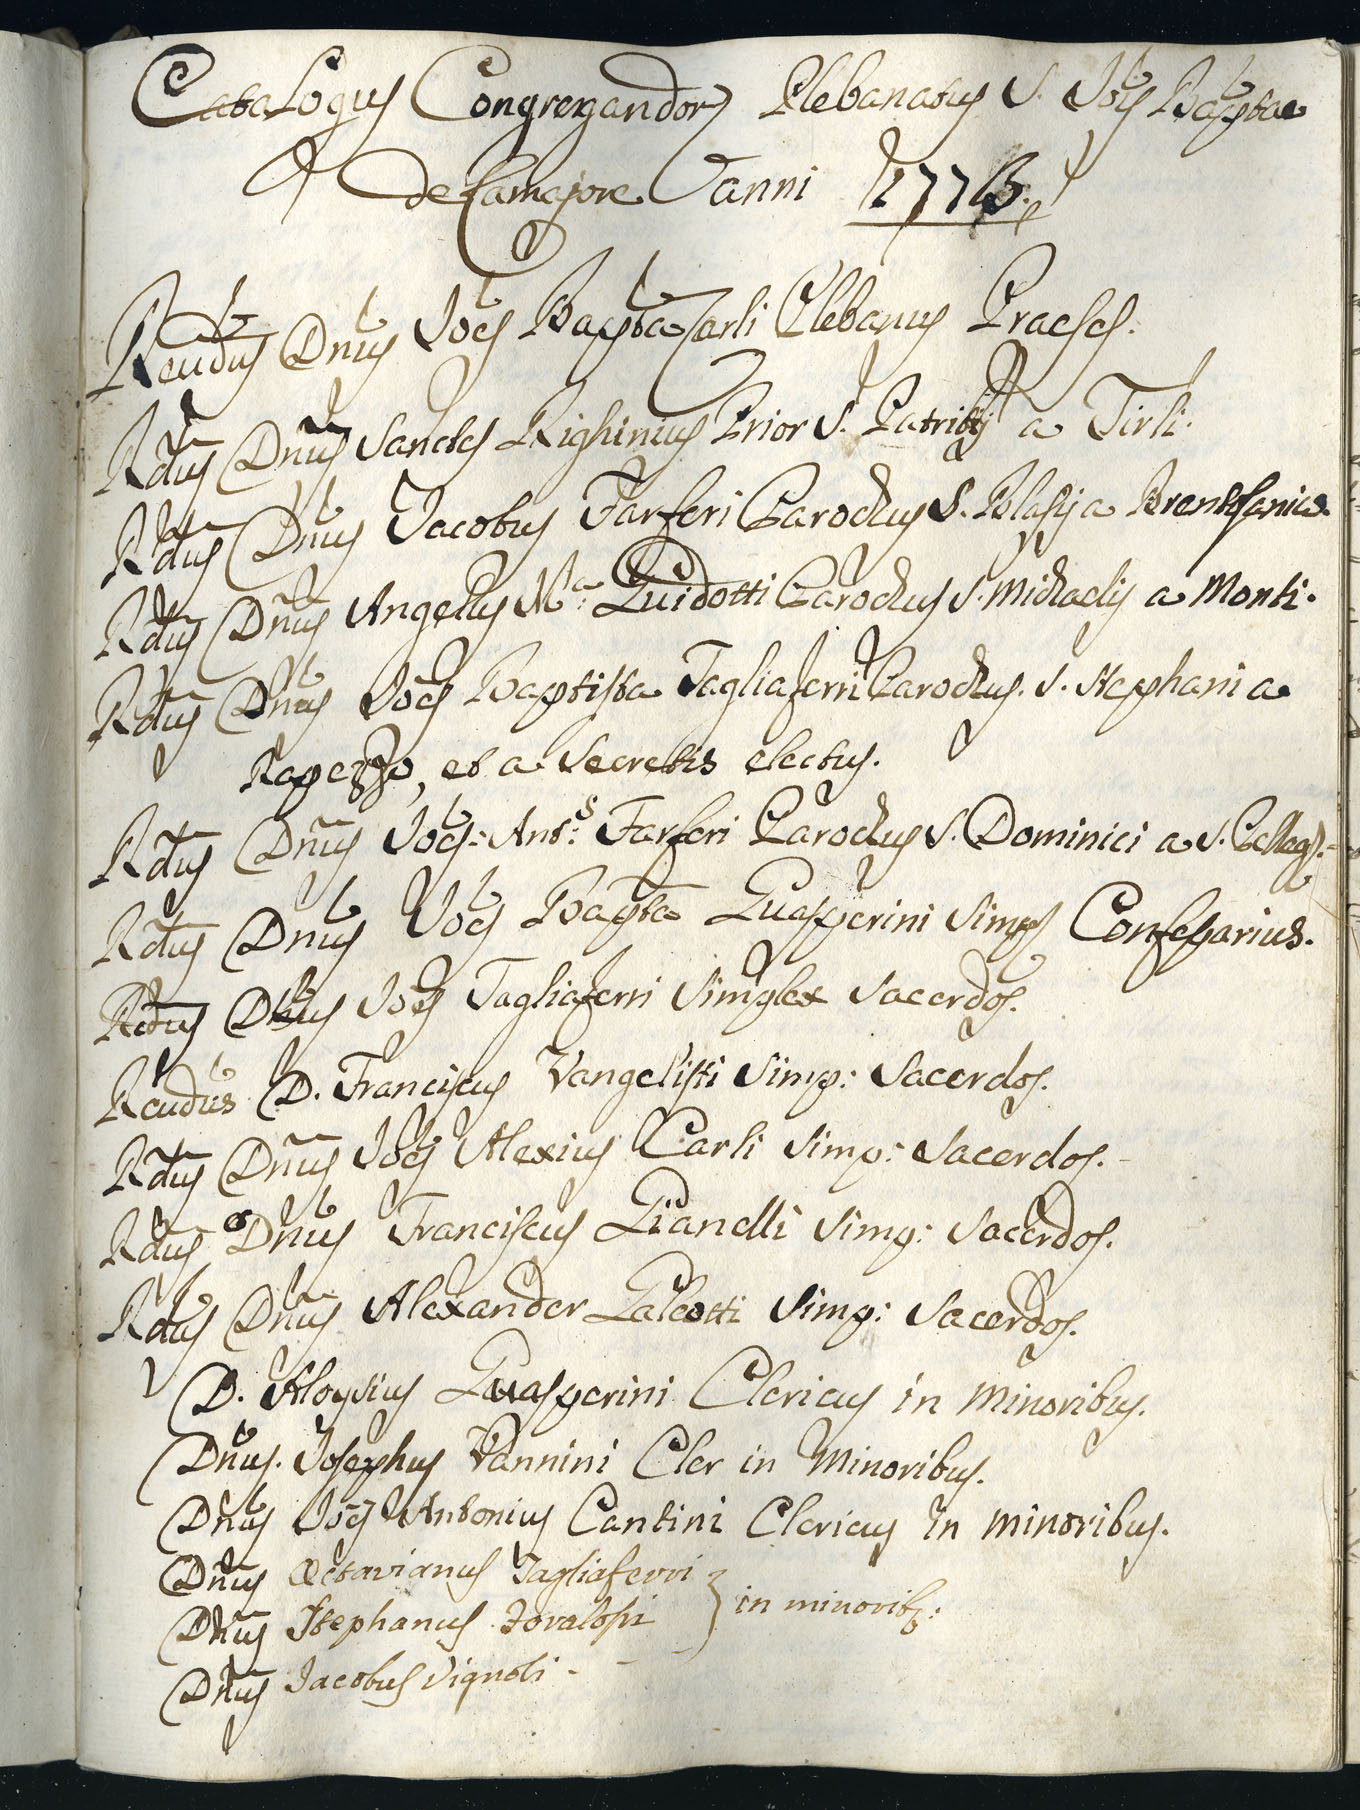 Catalogus Congregandor Plebanatus S. Jois Baptae
de Camajore anni 1773.
Reudus Dnus Joes Bapta Carli Plebanus Praeses.
Rdus Dnus Sanctes Righinius Prior S. Patritij a Tirli.
Rdus Dnus Jacobus Farferi Parochus S. Blasij a
Rdus Dnus Angelus Ma: Guidotti Parochus S. Michaelis a Monti.
Rdus Dnus Joes Baptista Tagliaferri Parochus. S. Stephani a
Rapezzo, et a Secretis electus.
Rdus Dnus Joes: Ants: Farferi Parochus S. Dominici a S. Pellag:
Rdus Dnus Joes Bapta Guasperini Simp Confessarius.
Rdus Dnus Joes Tagliaferri Simplex Sacerdos.
Reudus D. Franciscus Vangelisti Simp: Sacerdos.
Rdus Dnus Joes Alexius Carli Simp: Sacerdos.
Rdus Dnus Franciscus Gianelli Simp: Sacerdos.
Rdus Dnus Alexander Galeotti Simp: Sacerdos.
D. Aloysius Guasperini Clericus in Minoribus.
Dnus. Josephus Vannini Cler in Minoribus.
Dnus Joes Antonius Cantini Clericus in minoribus.
Dnus Octavianus Tagliaferri
Dnus Stephanus } in minorib:
Dnus Jacobus Vignoli - -